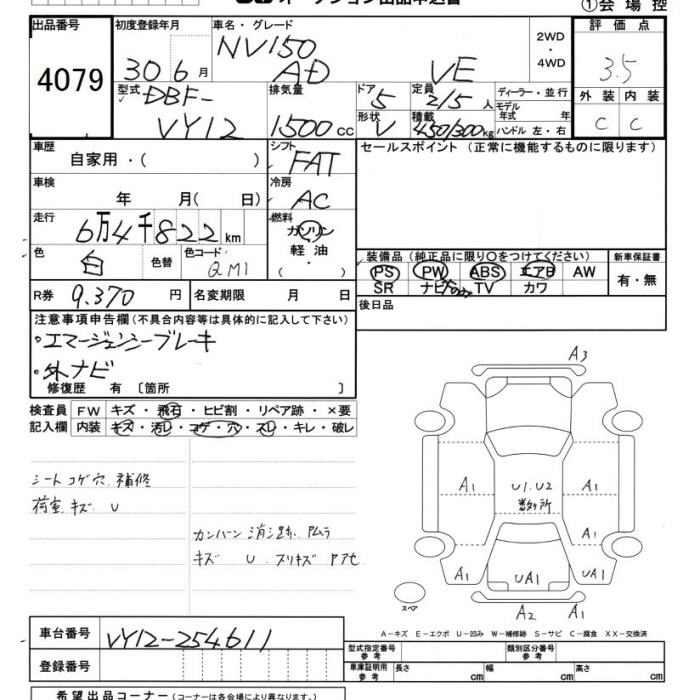 ①会場控
出品番号
4079
初度登録年月
30 6 月
車名・グレード
NV150
AD VE
2WD
・
4WD
評価点
3.5
型式
DBF-
VY12
排気量
1500 CC
ドア
5
定員
2/5 人
形状
V
積載
450/300kg
ディーラー・並行
モデル
年式 年
ハンドル 左・右
外装 内装
C C
車歴
自家用・( )
シフト
FAT
セールスポイント (正常に機能するものに限ります)
車検
年 月( 日)
冷房
AC
走行
6万4千822 km
燃料
ガソリン
軽油
( ・ )
色
白
色替
色コード
QM1
装備品 (純正品に限り〇をつけてください)
PS PW ABS エアB AW
SR ナビ TV カワ
新車保証書
有・無
R券 9,370 円
名変期限 月 日
後日品
注意事項申告欄(不具合内容等は具体的に記入して下さい)
・エマージェンシーブレーキ
・外ナビ
修復歴 有 〔箇所 〕
検査員
記入欄
FW キズ・飛石・ヒビ割・リペア跡・×要
内装 キズ・汚レ・コゲ・穴・スレ・キレ・破レ
シートコゲ穴、補修
荷室、キズ U
カンバン消し跡、Pムラ
キズ U スリキズ Pアセ
A3
A1
U1.U2
数ヶ所
A1
A1
A1
UA1
UA1
A2
A1
スペア
A-キズ E-エクボ U-凹み W-補修跡 S-サビ C-腐食 XX-交換済
車台番号
VY12-254611
登録番号
型式指定番号
参考
類別区分番号
参考
車庫証明用
参考
長さ cm
幅 cm
高さ cm
希望出品コーナー(コーナーは各会場により異なります。)